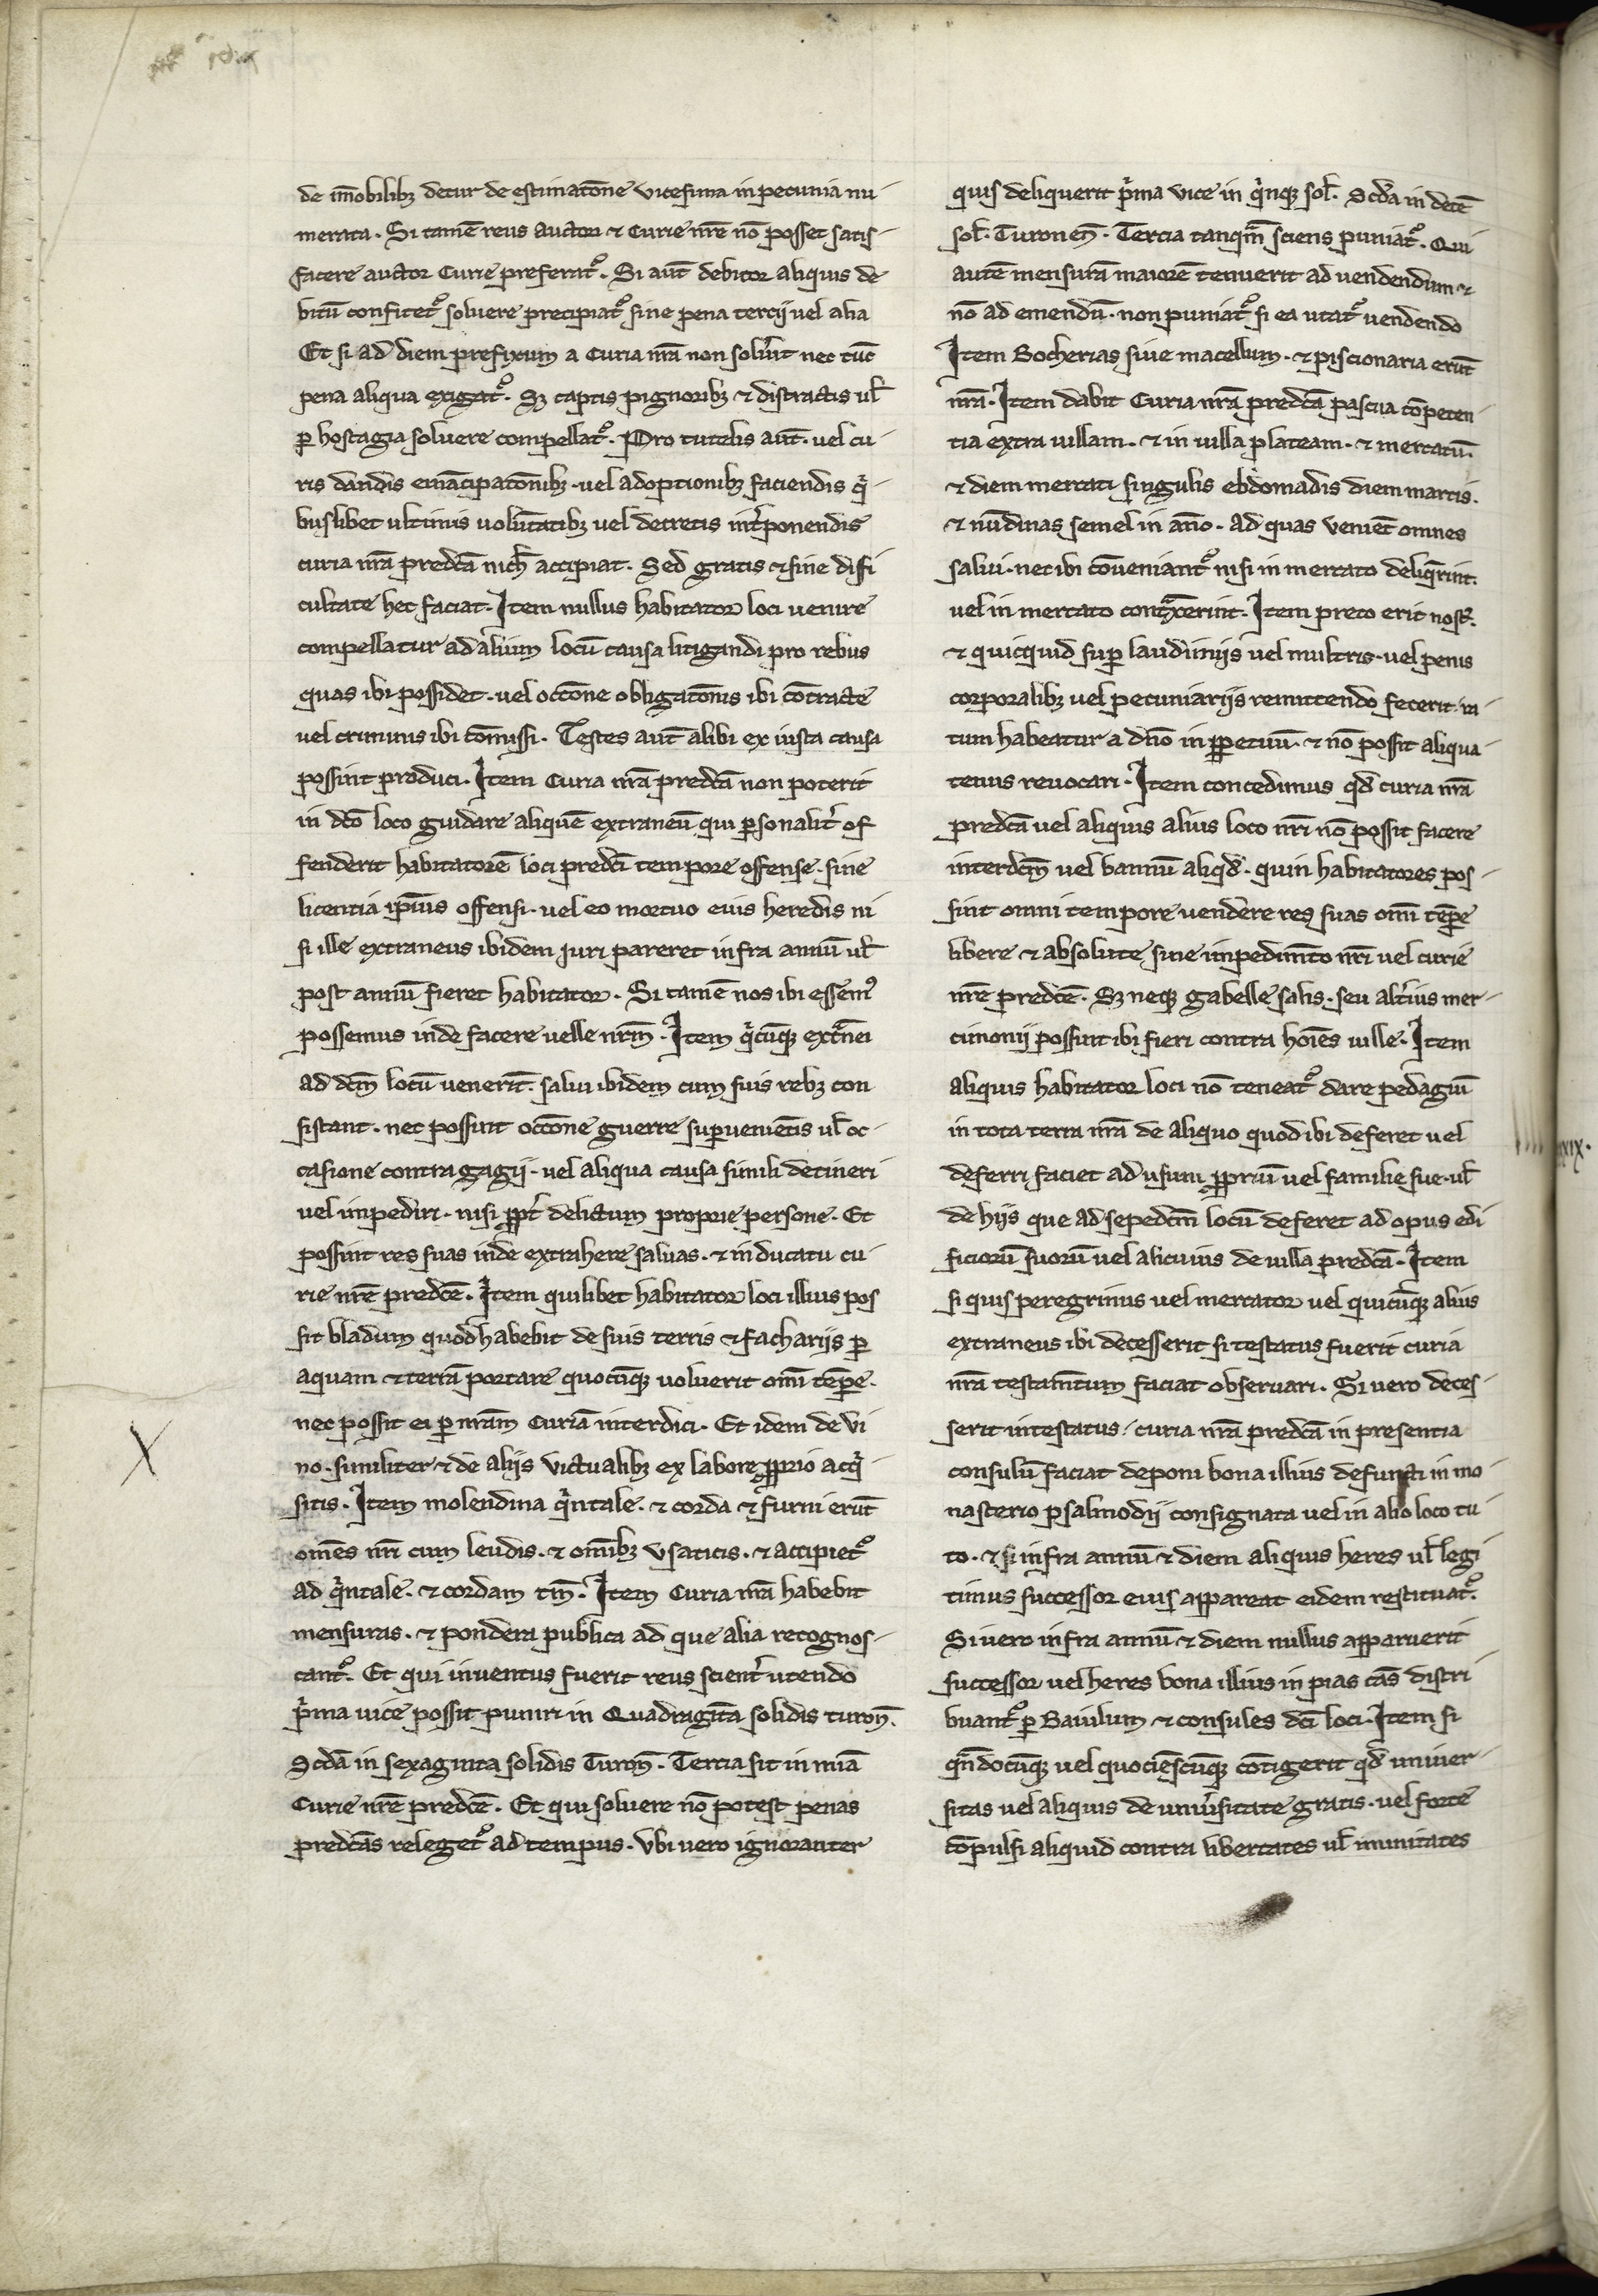 de im̅obilibꝫ detur de estimatōne vicesima in pecunia nu-
merata. Si tamē reus auctori ⁊ Curie nr̄e nō posset satis-
facere auctor Curie preferat᷒. Si aut̄ debitor aliquis de
bitū confitet᷒ soluere precipiat᷒ sine pena tercij uel alia
Et si ad diem prefixum a Curia nr̄a non soluit nec tūc
pena aliqua exigat᷒. Sꝫ captis pignoribꝫ ⁊ distractis ul̄
ꝑ hostagia soluere compellat᷒. Pro tutelis aut̄. uel cu-
ris dandis emācipatōnibꝫ. uel adoptionibꝫ faciendis qⁱ-
buslibet ultimis volūtatibꝫ uel decretis int̓ponendis
curia nr̄a predc̄a nich̄ accipiat. Sed gratis ⁊ sine difi
cultate hec faciat. Item nullus habitator loci venire
compellatur ad alium locū causa litigandi pro rebus
quas ibi possidet. uel occōne obligatōnis ibi cōtracte
uel criminis ibi cōmissi. Testes aut̄ alibi ex iusta causa
possint produci. Item Curia nr̄a predc̄a non poterit
in dc̄o loco guidare aliquē extraneū qui ꝑsonalit̓ of
fenderit habitatorē loci predc̄i tempore offense. sine
licentia ip̄ius offensi. uel eo mortuo eius heredis ni
si ille extraneus ibidem juri pareret infra annū ul̄
post annū fieret habitator. Si tamē nos ibi essem᷒
possemus inde facere uelle nr̄m. Item qⁱcūqꝫ extᵃnei
ad dc̄m locū venerit. salui ibidem cum suis rebꝫ con
sistant. nec possint occōne guerre suꝑuenientis ul̄ oc-
casione contragagij. uel aliqua causa simili detineri
uel impediri. nisi ꝓpt̓ delictum proprie persone. Et
possint res suas inde extrahere saluas. ⁊ in ducatu cu-
rie nr̄e predc̄e. Item quilibet habitator loci illius pos
sit bladum quod habebit de suis terris ⁊ fachariis ꝑ
aquam ⁊ terrā portare quocūqꝫ uoluerit om̄i tēꝑe.
nec possit ei ꝑ nr̄am Curiā interdici. Et idem de vi
no. similiter ⁊ de aliis victualibꝫ ex labore ꝓprio acqⁱ
sitis. Item molendina qⁱntale. ⁊ corda ⁊ furni erūt
om̄es nr̄i cum leudis. ⁊ om̄ibꝫ vsaticis. ⁊ accipiet᷒
ad qⁱntale. ⁊ cordam tm̄. Item Curia nr̄a habebit
mensuras. ⁊ pondera publica ad que alia recognos-
cant᷒. Et qui inuentus fuerit reus scient̓ utendo
pⁱma uice possit puniri in Quadraginta solidis turoñ.
Scd̄a in sexaginta solidis Turoñ. Tercia sit in mīa
Curie nr̄e predc̄e. Et qui soluere nō potest penas
predc̄as releget᷒ ad tempus. Vbi uero ignoranter
quis deliquerit pⁱma vice in qⁱnqꝫ sol̄. Scd̄a in decē
sol̄. Turoneñ. Tercia tanqm̄ sciens puniat᷒. Qui
autē mensurā maiorē tenuerit ad uendendum ⁊
nō ad emendū. non puniat᷒ si ea utat᷒ uendendo
Item Bocherias siue macellum. ⁊ piscionaria erūt
nr̄a. Item dabit Curia nr̄a predc̄a pascua cōpeten-
tia extra uillam. ⁊ in uilla plateam. ⁊ mercatū.
⁊ diem mercati singulis ebdomadis diem martis.
⁊ nūdinas semel in āno. ad quas veniēt omnes
salui. nec ibi cōueniant᷒ nisi in mercato deliqᵉrint.
uel in mercato contᵃxerint. Item preco erit nost̓.
⁊ quicquid suꝑ laudimiis uel mulctis. uel penis
corporalibꝫ uel pecuniariis remittendo fecerit. ra-
tum habeatur a dn̄o in ꝑpetuū. ⁊ nō possit aliqua-
tenus reuocari. Item concedimus qd̄ curia nr̄a
predc̄a uel aliquis alius loco nr̄i nō possit facere
interdc̄m uel bannū aliqd̄. quin habitatores pos-
sint omni tempore uendere res suas om̄i tēꝑe
libere ⁊ absolute sine impedimto nr̄i uel curie
nr̄e predc̄e. Sꝫ neqꝫ gabelle salis. seu alt̓ius mer-
cimonij possint ibi fieri contra hoīes uille. Item
aliquis habitator loci nō teneat᷒ dare pedagiū
in tota terra nr̄a de aliquo quod ibi deferet uel
deferri faciet ad usum ꝓpriū uel familie sue. ul̄
de hiis que ad sepedc̄m locū deferet ad opus edi
ficiorū suorū uel alicuius de uilla predc̄a. Item
si quis peregrinus uel mercator uel quicūqꝫ alius
extraneus ibi decesserit si testatus fuerit curia
nr̄a testamtum faciat obseruari. Si uero deces-
serit intestatus. curia nr̄a predc̄a in presentia
consulū faciat deponi bona illius defuncti in mo
nasterio psalmodij consignata uel in alio loco tu-
to. ⁊ si infra annū ⁊ diem aliquis heres ul̄ legi
timus successor eius appareat eidem restituat᷒.
Si uero infra annū ⁊ diem nullus apparuerit
successor uel heres bona illius in pias cās distri
buant᷒ ꝑ Baiulum ⁊ consules dc̄i loci. Item si
qn̄docūqꝫ uel quociēscūqꝫ cōtigerit qd̄ uniuer-
sitas uel aliquis de uniu̓sitate gratis. uel forte
cōpulsi aliquid contra libertates ul̄ imunitates